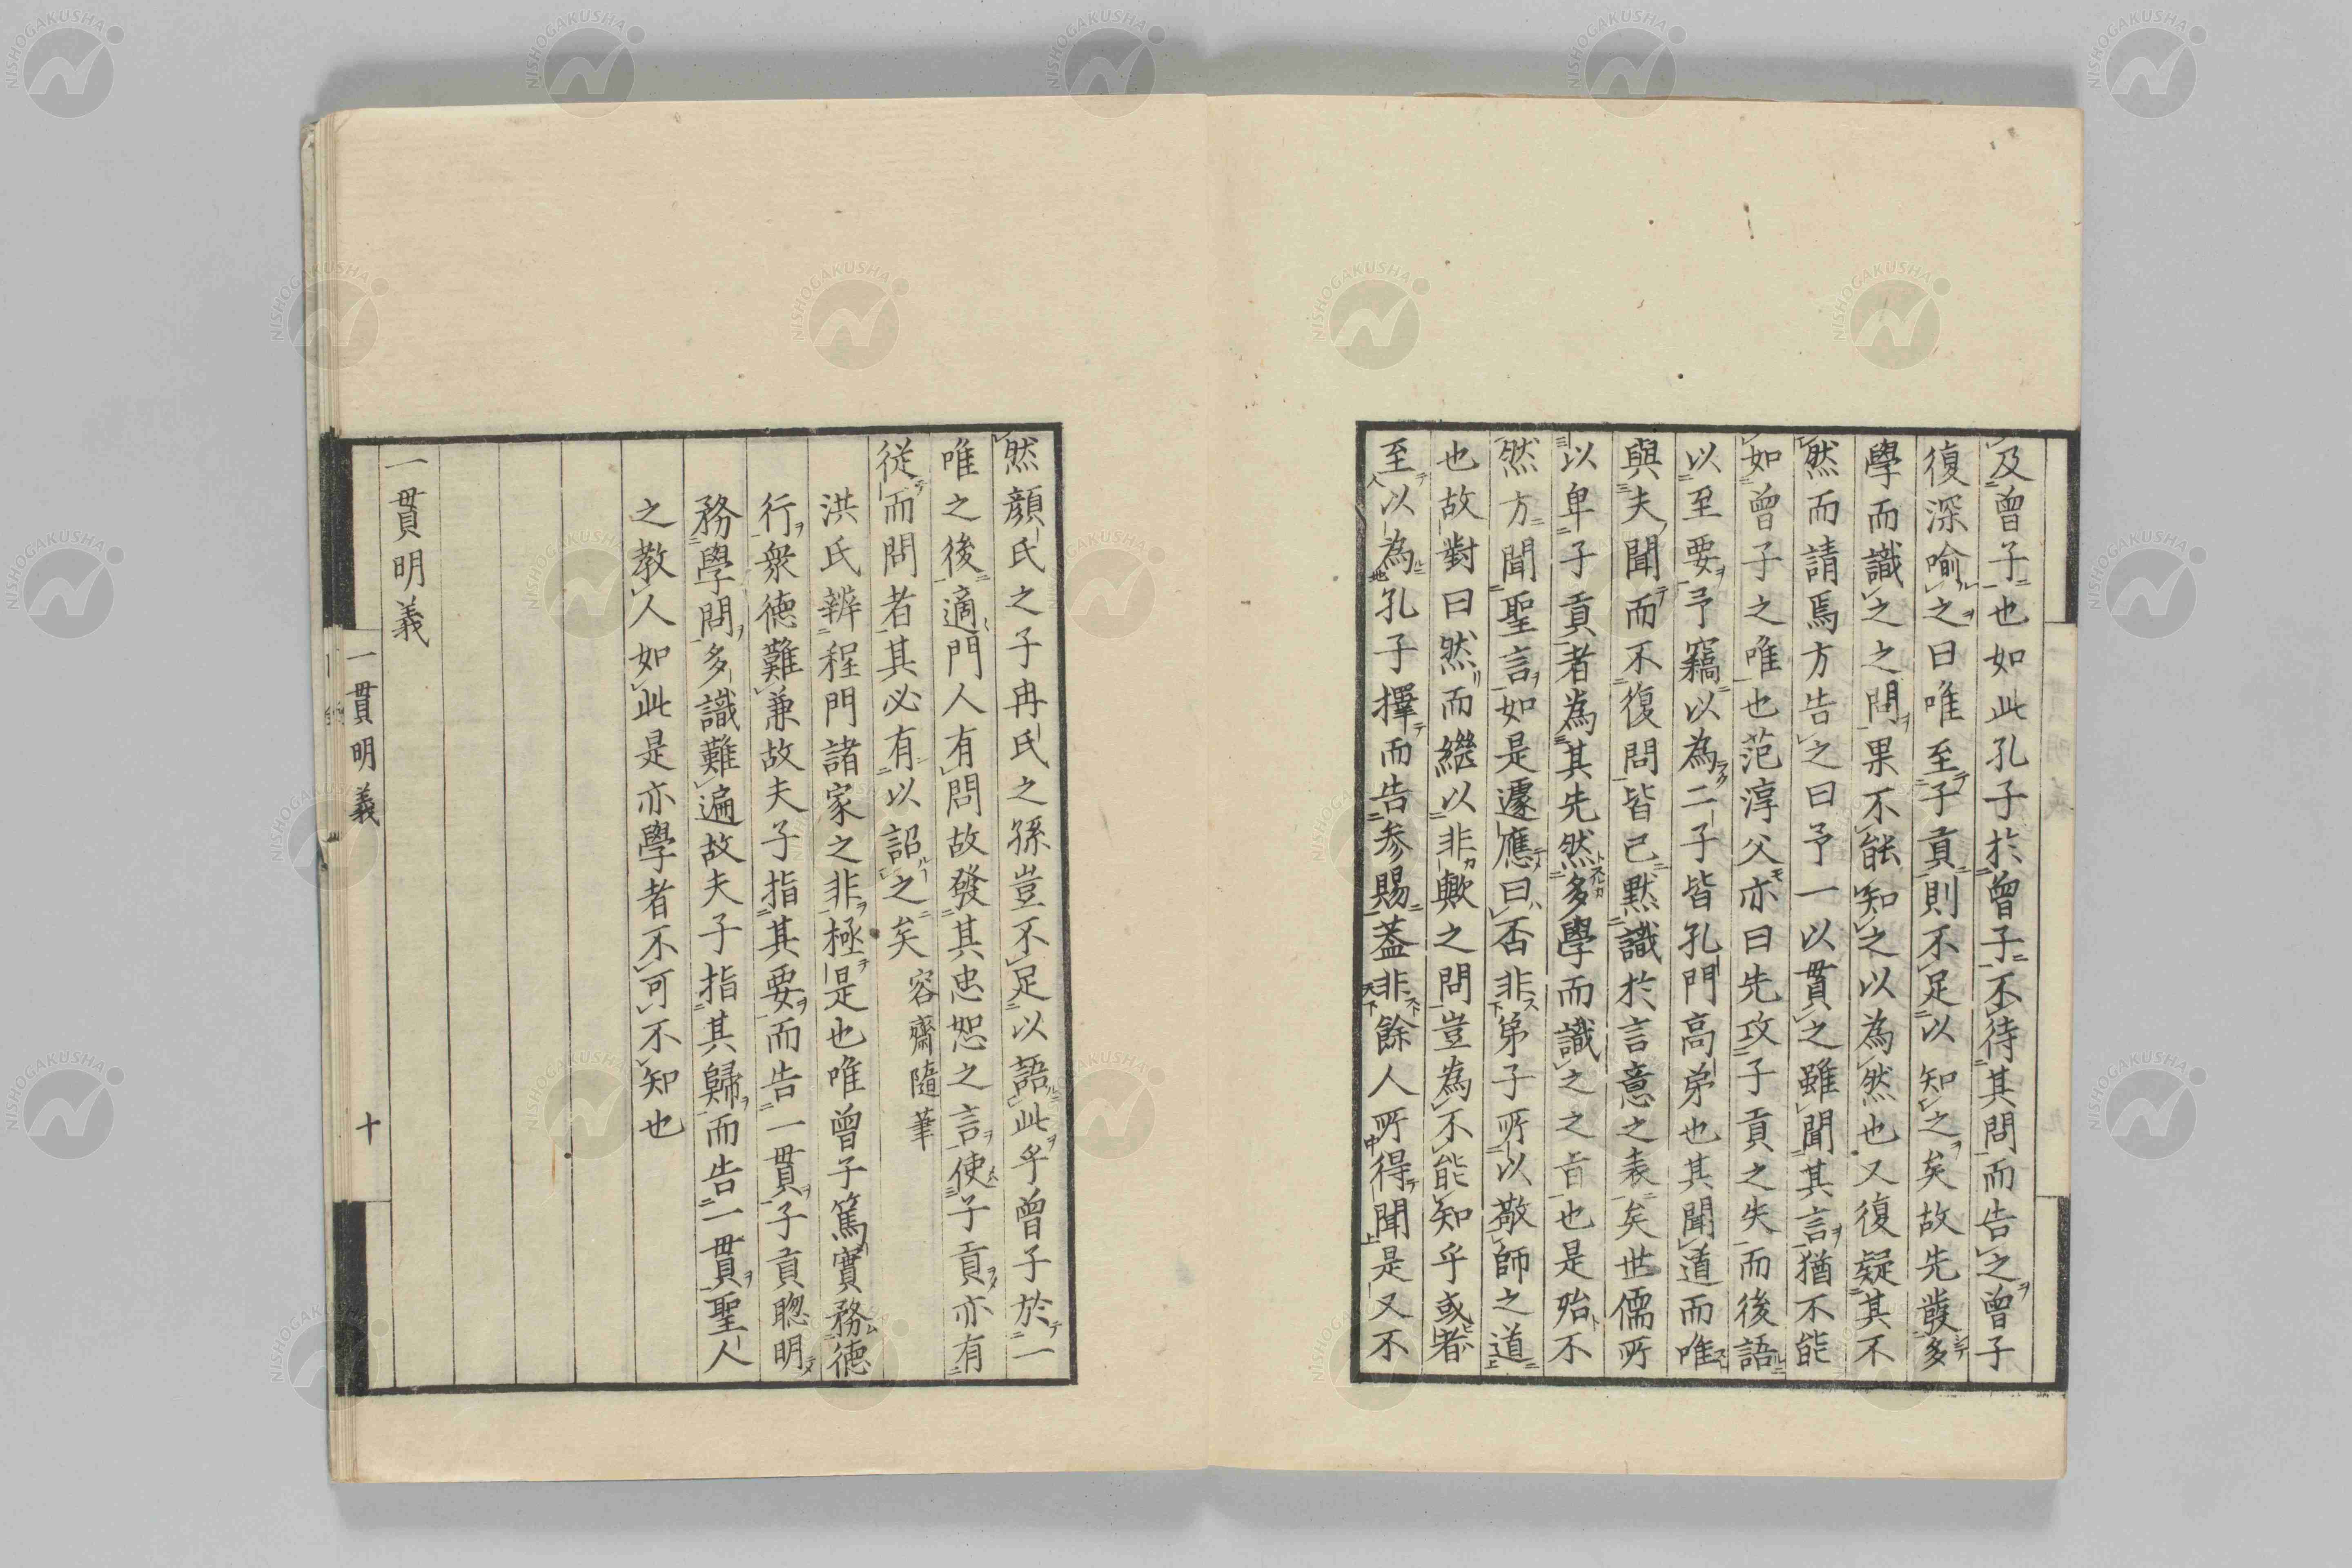 及曽子也如此孔子於曽子不待其問而告之曽子
復深喻之曰唯至子貢則不足以知之矣故先發多
學而識之之問果不能知之以為然也又復疑其不
然而請焉方告之曰予一以貫之雖聞其言猶不能
如曽子之唯也范淳父亦曰先攻子貢之失而後語
以至要予竊以為二子皆孔門高弟也其聞道而唯
與夫聞而不復問皆已黙識於言意之表矣世儒所
以卑子貢者為其先然多學而識之之旨也是殆不
然方聞聖言如是遽應曰否非弟子所以敬師之道
也故對曰然而繼以非歟之問豈為不能知乎或者
至以為孔子擇而告参賜蓋非餘人所得聞是又不
然顔氏之子冉氏之孫豈不足以語此乎曽子於一
唯之後適門人有問故發其忠恕之言使子貢亦有
従而問者其必有以詔之矣 容齋隨筆
洪氏辨程門諸家之非極是也唯曽子篤實務徳
行衆徳難兼故夫子指其要而告一貫子貢聡明
務學問多識難遍故夫子指其歸而告一貫聖人
之教人如此是亦學者不可不知也
一貫明義
一貫明義 十
NISHOGAKUSHA